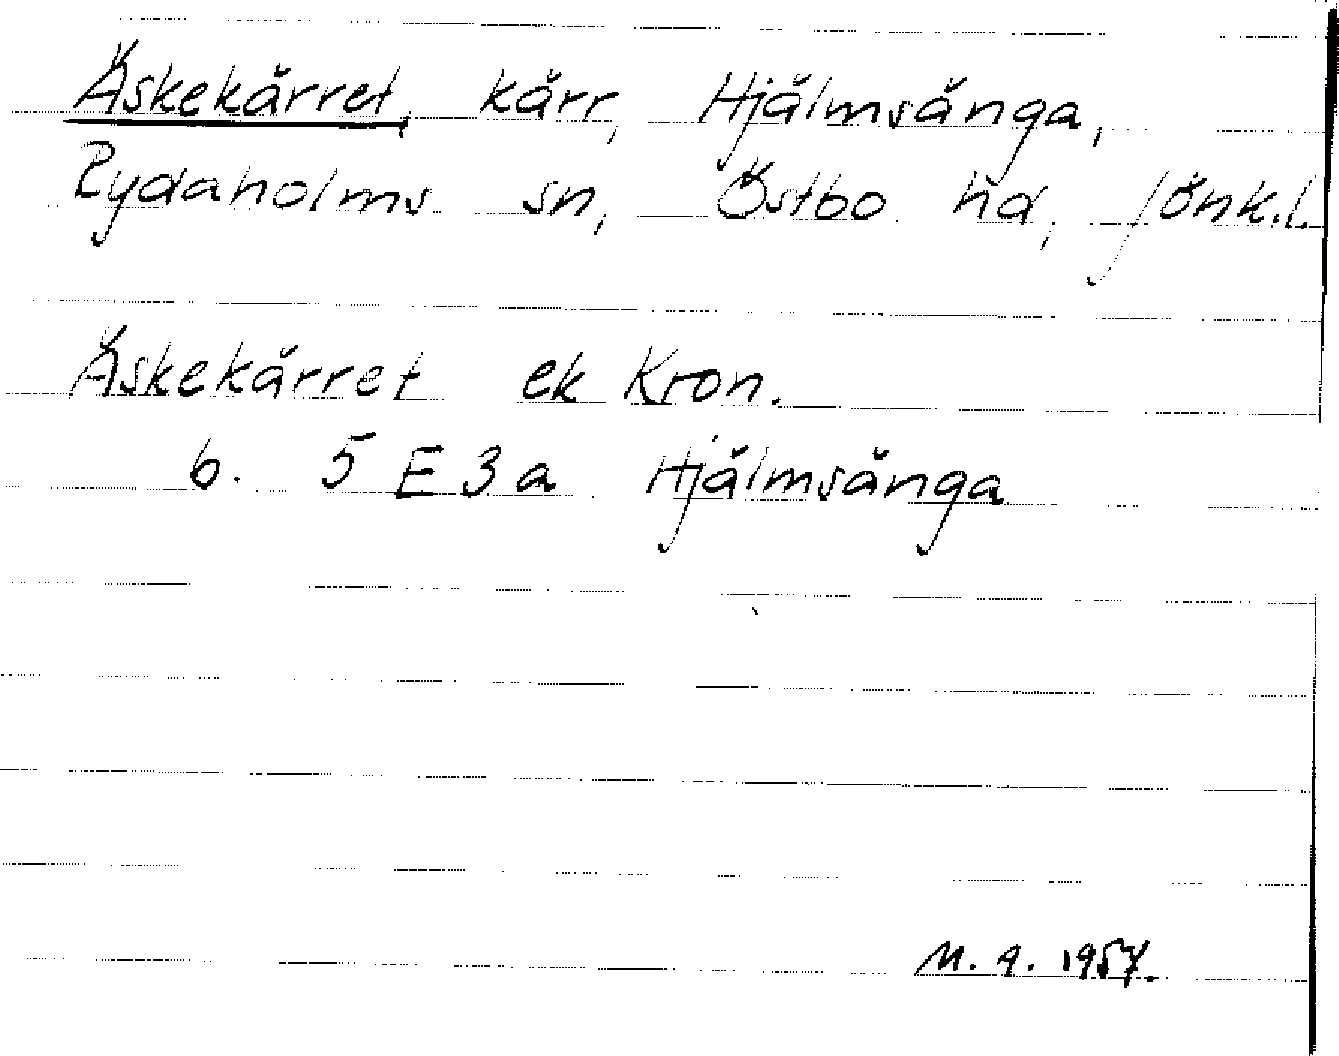 Äskekärret, kärr, Hjälmsänga,
Rydaholms sn, Östbo hd, Jönk.l.
Äskekärret ek Kron.
b. 5 E 3 a Hjälmsänga
M. A. 1957.